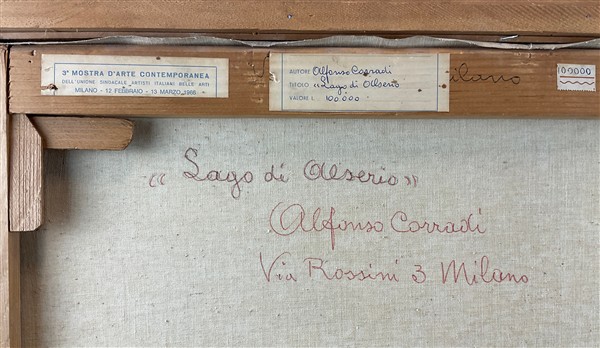 3ª MOSTRA D'ARTE CONTEMPORANEA
DELL'UNIONE SINDACALE ARTISTI ITALIANI BELLE ARTI
MILANO - 12 FEBBRAIO - 13 MARZO 1966
AUTORE Alfonso Corradi
TITOLO "Lago di Alserio
VALORE L. 100.000
Milano
100000
"Lago di Alserio"
Alfonso Corradi
Via Rossini 3 Milano